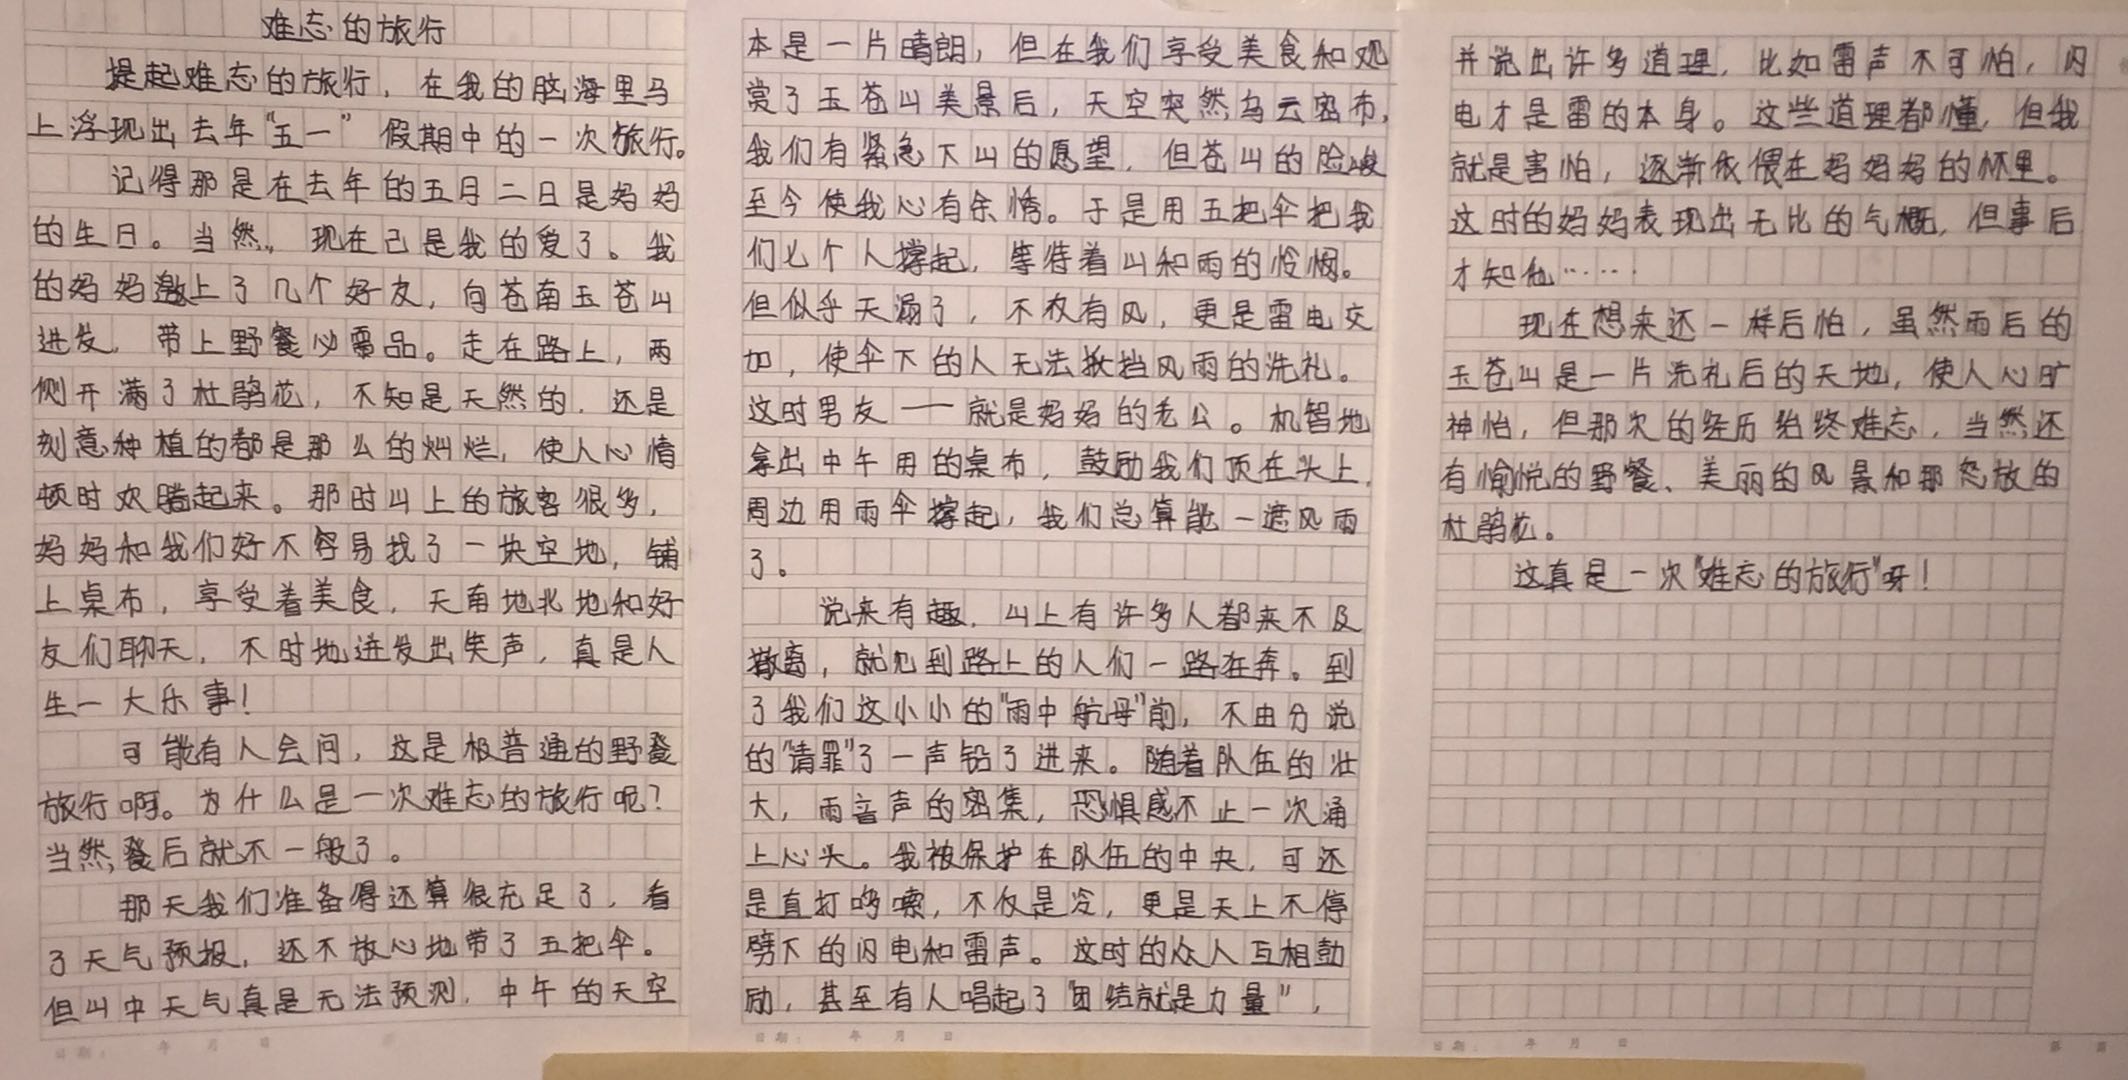 难忘的旅行
提起难忘的旅行，在我的脑海里马
上浮现出去年“五一”假期中的一次旅行。
记得那是在去年的五月二日是妈妈
的生日。当然，现在已是我的爱了。我
的妈妈邀上了几个好友，向苍南玉苍山
进发，带上野餐必需品。走在路上，两
侧开满了杜鹃花，不知是天然的，还是
刻意种植的都是那么的灿烂，使人心情
顿时欢腾起来。那时山上的旅客很多，
妈妈和我们好不容易找了一块空地，铺
上桌布，享受着美食，天南地北地和好
友们聊天，不时地迸发出笑声，真是人
生一大乐事！
可能有人会问，这是极普通的野餐
旅行啊。为什么是一次难忘的旅行呢？
当然，餐后就不一般了。
那天我们准备得还算很充足了，看
了天气预报，还不放心地带了五把伞。
但山中天气真是无法预测，中午的天空
本是一片晴朗，但在我们享受美食和观
赏了玉苍山美景后，天空突然乌云密布，
我们有紧急下山的愿望，但苍山的险峻
至今使我心有余悸。于是用五把伞把我
们七个人撑起，等待着山和雨的怜悯。
但似乎天漏了，不仅有风，更是雷电交
加，使伞下的人无法抵挡风雨的洗礼。
这时男友——就是妈妈的老公。机智地
拿出中午用的桌布，鼓励我们顶在头上，
周边用雨伞撑起，我们总算能一遮风雨
了。
说来有趣，山上有许多人都来不及
撤离，就见到路上的人们一路在奔。到
了我们这小小的“雨中航母”前，不由分说
的“请罪”了一声钻了进来。随着队伍的壮
大，雨音声的密集，恐惧感不止一次涌
上心头。我被保护在队伍的中央，可还
是直打哆嗦，不仅是冷，更是天上不停
劈下的闪电和雷声。这时的众人互相鼓
励，甚至有人唱起了“团结就是力量”，
并说出许多道理，比如雷声不可怕，闪
电才是雷的本身。这些道理都懂，但我
就是害怕，逐渐依偎在妈妈妈的怀里。
这时的妈妈表现出无比的气概，但事后
才知他……
现在想来还一样后怕，虽然雨后的
玉苍山是一片洗礼后的天地，使人心旷
神怡，但那次的经历始终难忘，当然还
有愉悦的野餐、美丽的风景和那怒放的
杜鹃花。
这真是一次“难忘的旅行”呀！
日期： 年 月 日
日期： 年 月 日
日期： 年 月 日
第 页